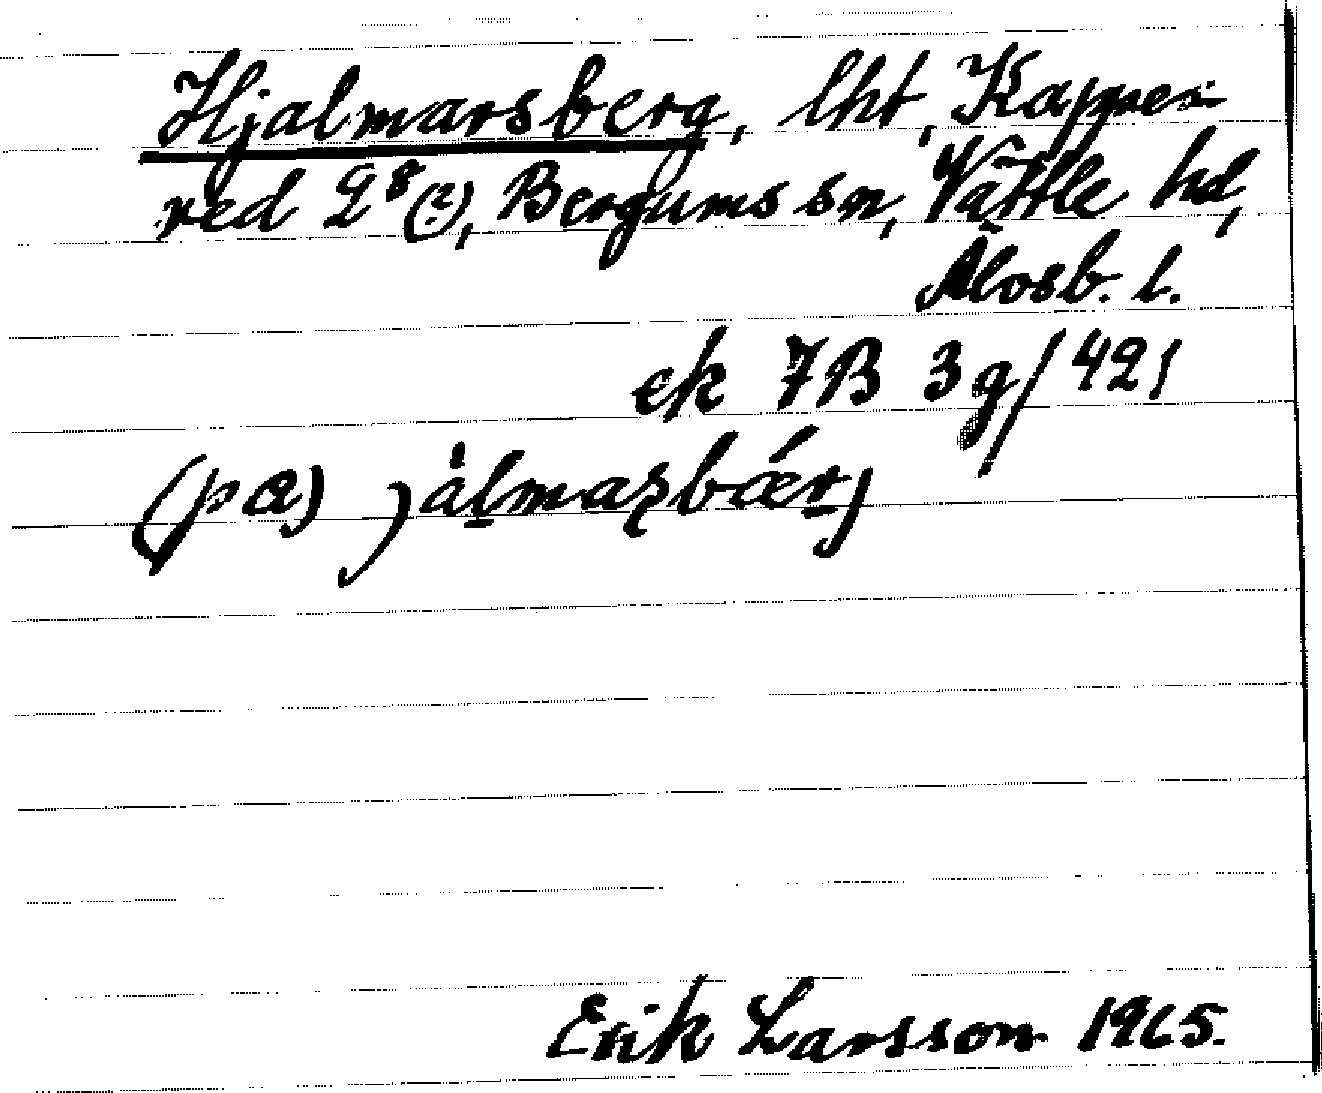 Hjalmarsberg, lht, Kapper
red 2⁸ (?), Bergums sn, Vättle hd,
Älvsb. l.
ek 7B 3g/421
(pa) jalmasbærj
Erik Larsson 1965.